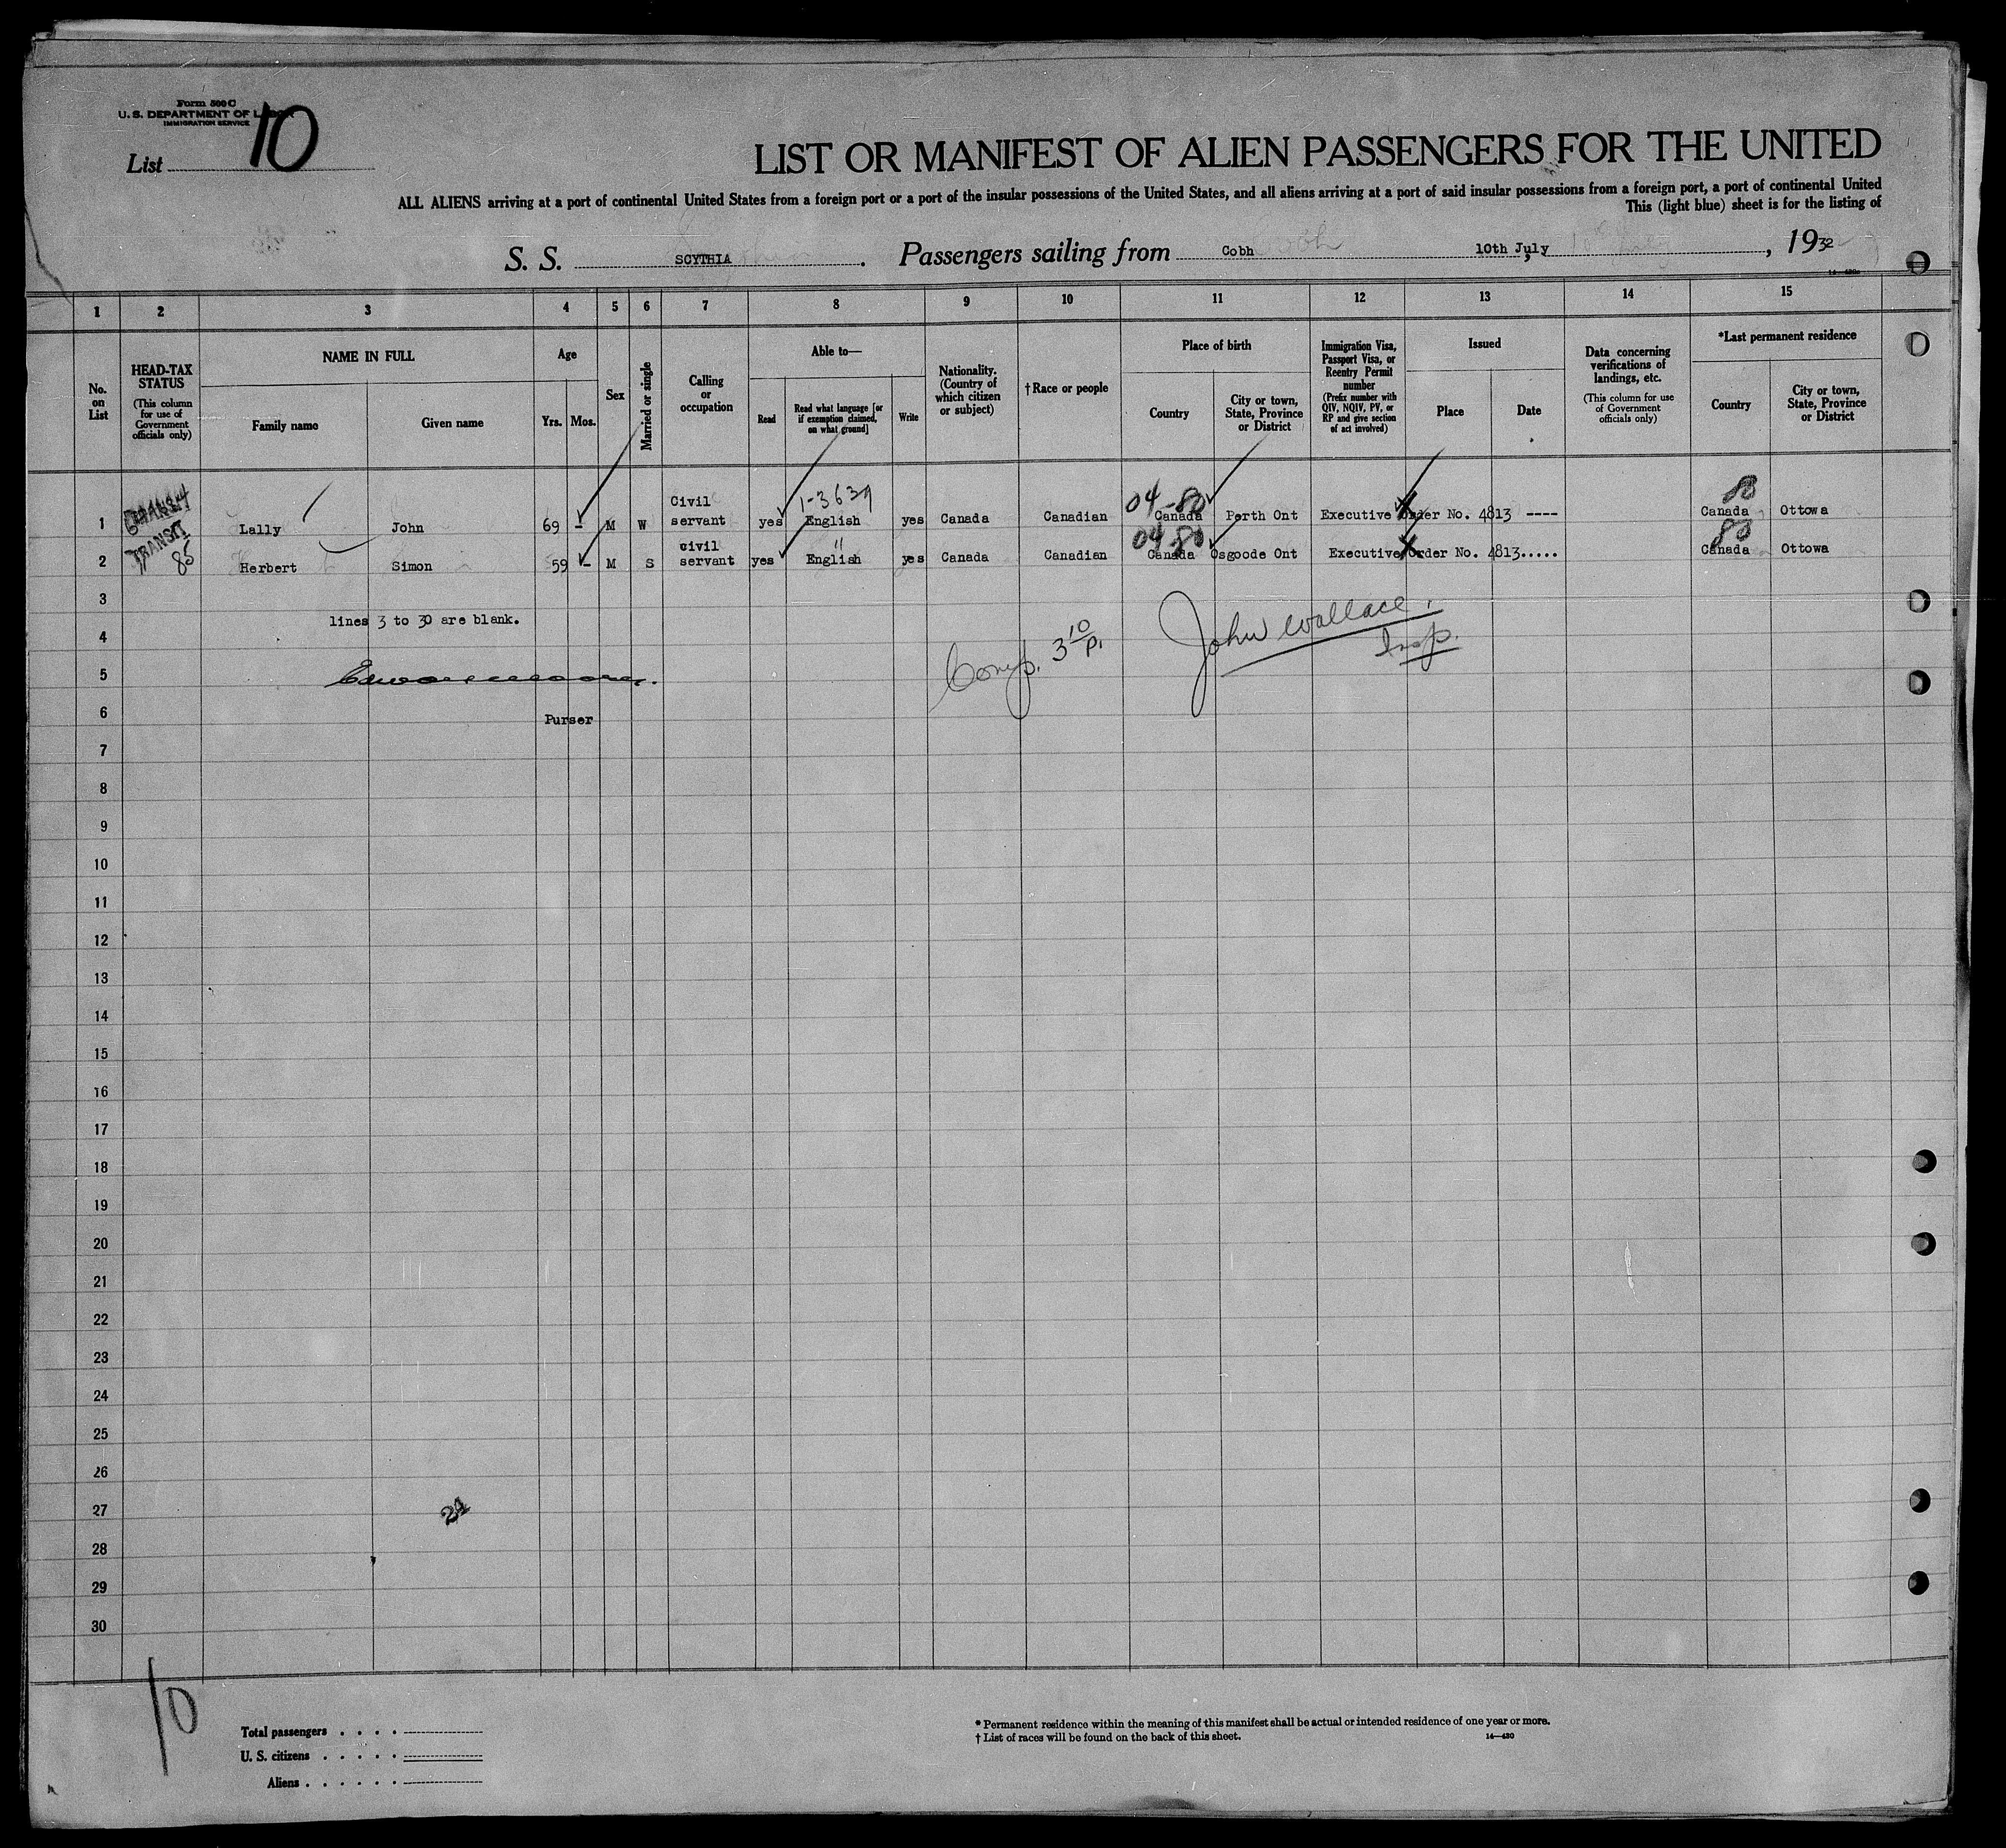 Form 500 C
U. S. DEPARTMENT OF LABOR
IMMIGRATION SERVICE
List 10
LIST OR MANIFEST OF ALIEN PASSENGERS FOR THE UNITED
ALL ALIENS arriving at a port of continental United States from a foreign port or a port of the insular possessions of the United States, and all aliens arriving at a port of said insular possessions from a foreign port, a port of continental United
This (light blue) sheet is for the listing of
S. S. SCYTHIA. Passengers sailing from Cobh 10th July, 1932
1 2 3 4 5 6 7 8 9 10 11 12 13 14 15
No. on List
HEAD-TAX STATUS (This column for use of Government officials only)
NAME IN FULL
Family name Given name
Age
Yrs. Mos.
Sex
Married or single
Calling or occupation
Able to—
Read
Read what language [or if exemption claimed, on what ground]
Write
Nationality. (Country of which citizen or subject)
†Race or people
Place of birth
Country
City or town, State, Province or District
Immigration Visa, Passport Visa, or Reentry Permit number (Prefix number with QIV, NQIV, PV, or RP and give section of act involved)
Issued
Place Date
Data concerning verifications of landings, etc. (This column for use of Government officials only)
*Last permanent residence
Country
City or town, State, Province or District
04-80
1 TRANSIT Lally John 69 - M W Civil servant yes English yes Canada Canadian Canada Perth Ont Executive Order No. 4813 ---- Canada Ottowa
04 80 80
2 TRANSIT 85 Herbert Simon 59 - M S civil servant yes English yes Canada Canadian Canada Osgoode Ont Executive Order No. 4813..... Canada Ottowa
3
lines 3 to 30 are blank.
4
Comp. 3 10 P. John Wallace. Insp.
5
6
Purser
7
8
9
10
11
12
13
14
15
16
17
18
19
20
21
22
23
24
25
26
27
24
28
29
30
10
Total passengers . . . .
U. S. citizens . . . . .
Aliens . . . . . .
* Permanent residence within the meaning of this manifest shall be actual or intended residence of one year or more.
† List of races will be found on the back of this sheet. 14—430